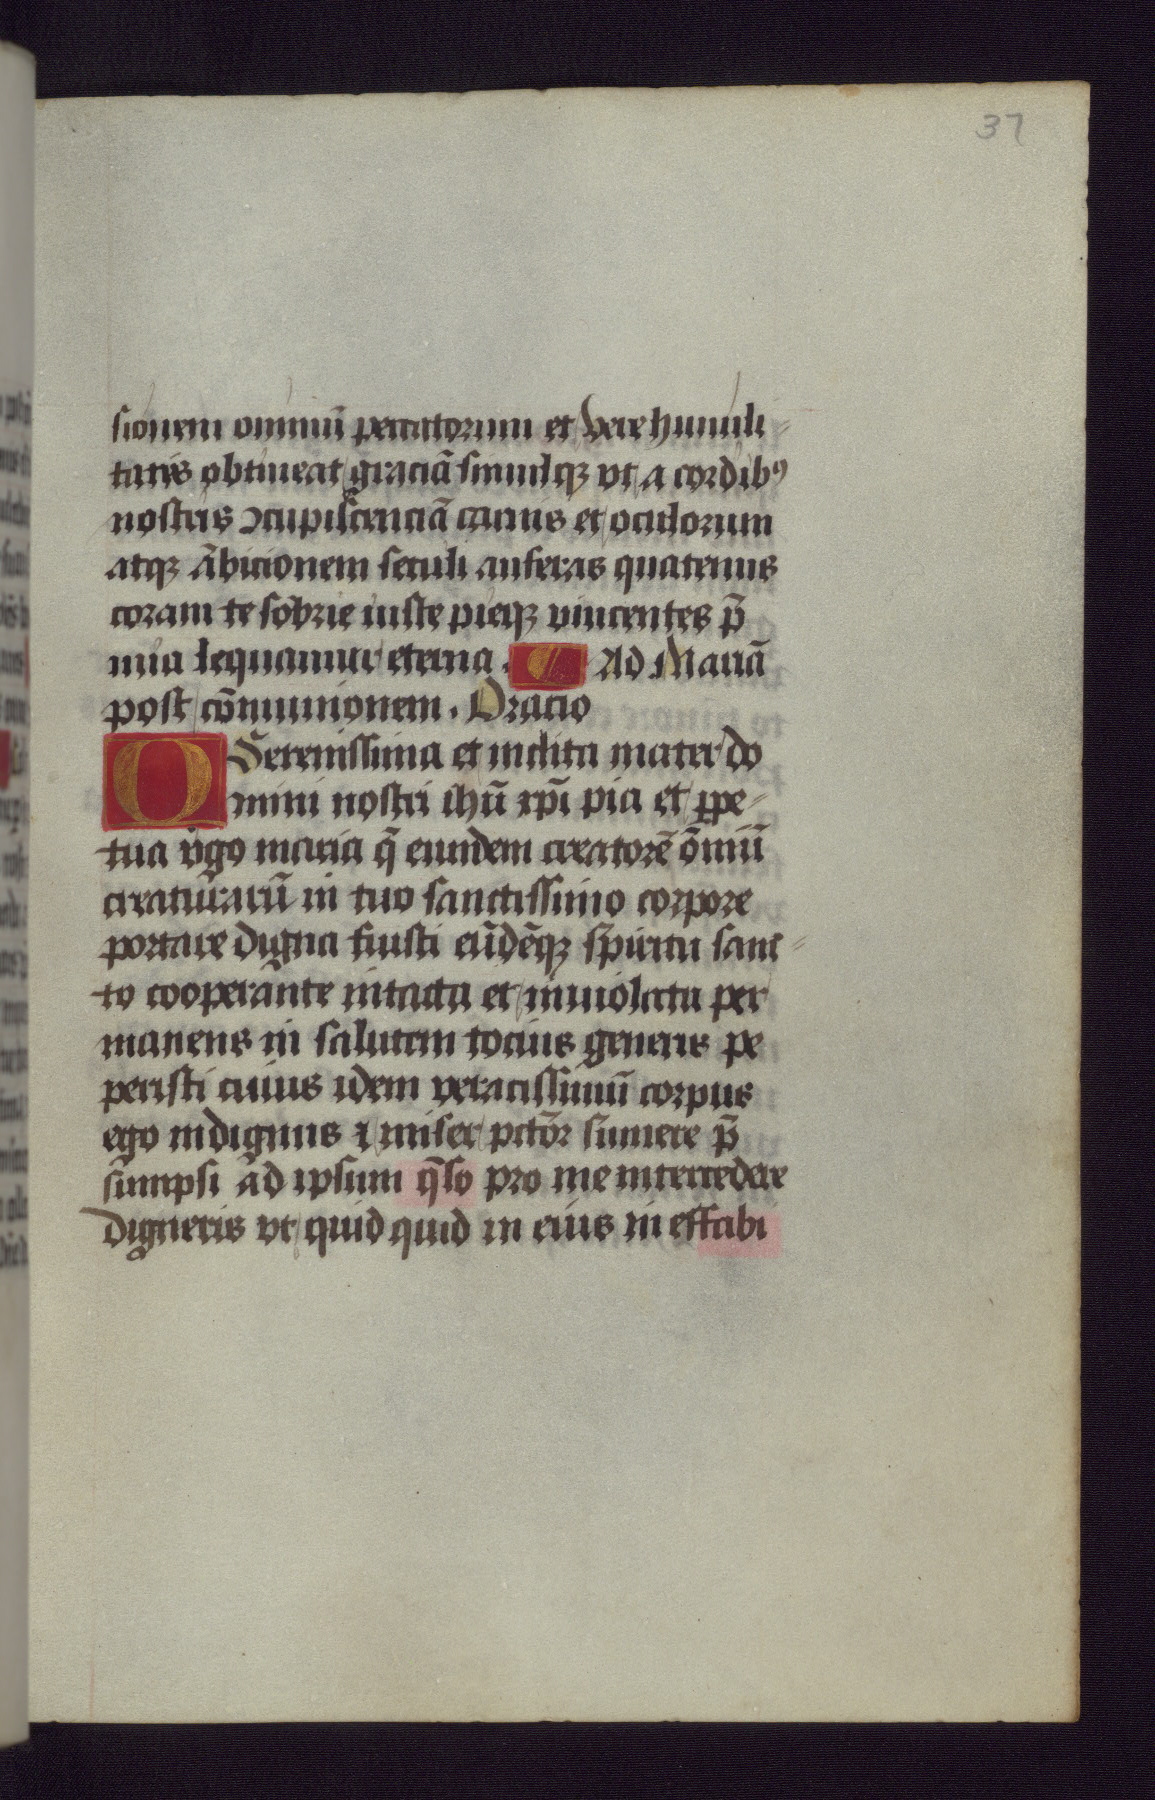 37
sionem omniū peccatorum et vere humili-
tatis obtineat graciā simulqꝫ vt a cordibꝰ
nostris ↄcupiscenciā carnis et oculorum
atqꝫ ābicionem seculi auferas quatenus
coram te sobrie iuste pieqꝫ viuentes p̄
mia sequamur eterna . ¶ Ad Mariā
post cōmunionem . Oracio
O Serenissima et inclita mater do
mini nostri ihū xp̄i pia et ꝑpe-
tua v̄go maria q̄ eundem creatorē ōmiū
creaturarū in tuo sanctissimo corpore
portare digna fuisti eūdēqꝫ sp̄iritu sanc-
to cooperante intacta et inuiolata per
manens in salutem tocius generis pe
peristi cuius idem veracissimū corpus
ego indignus ⁊ miser pctōr sumere p̄
sumpsi ad ipsum q̄so pro me intercedere
digneris vt quid quid in eius in effabi